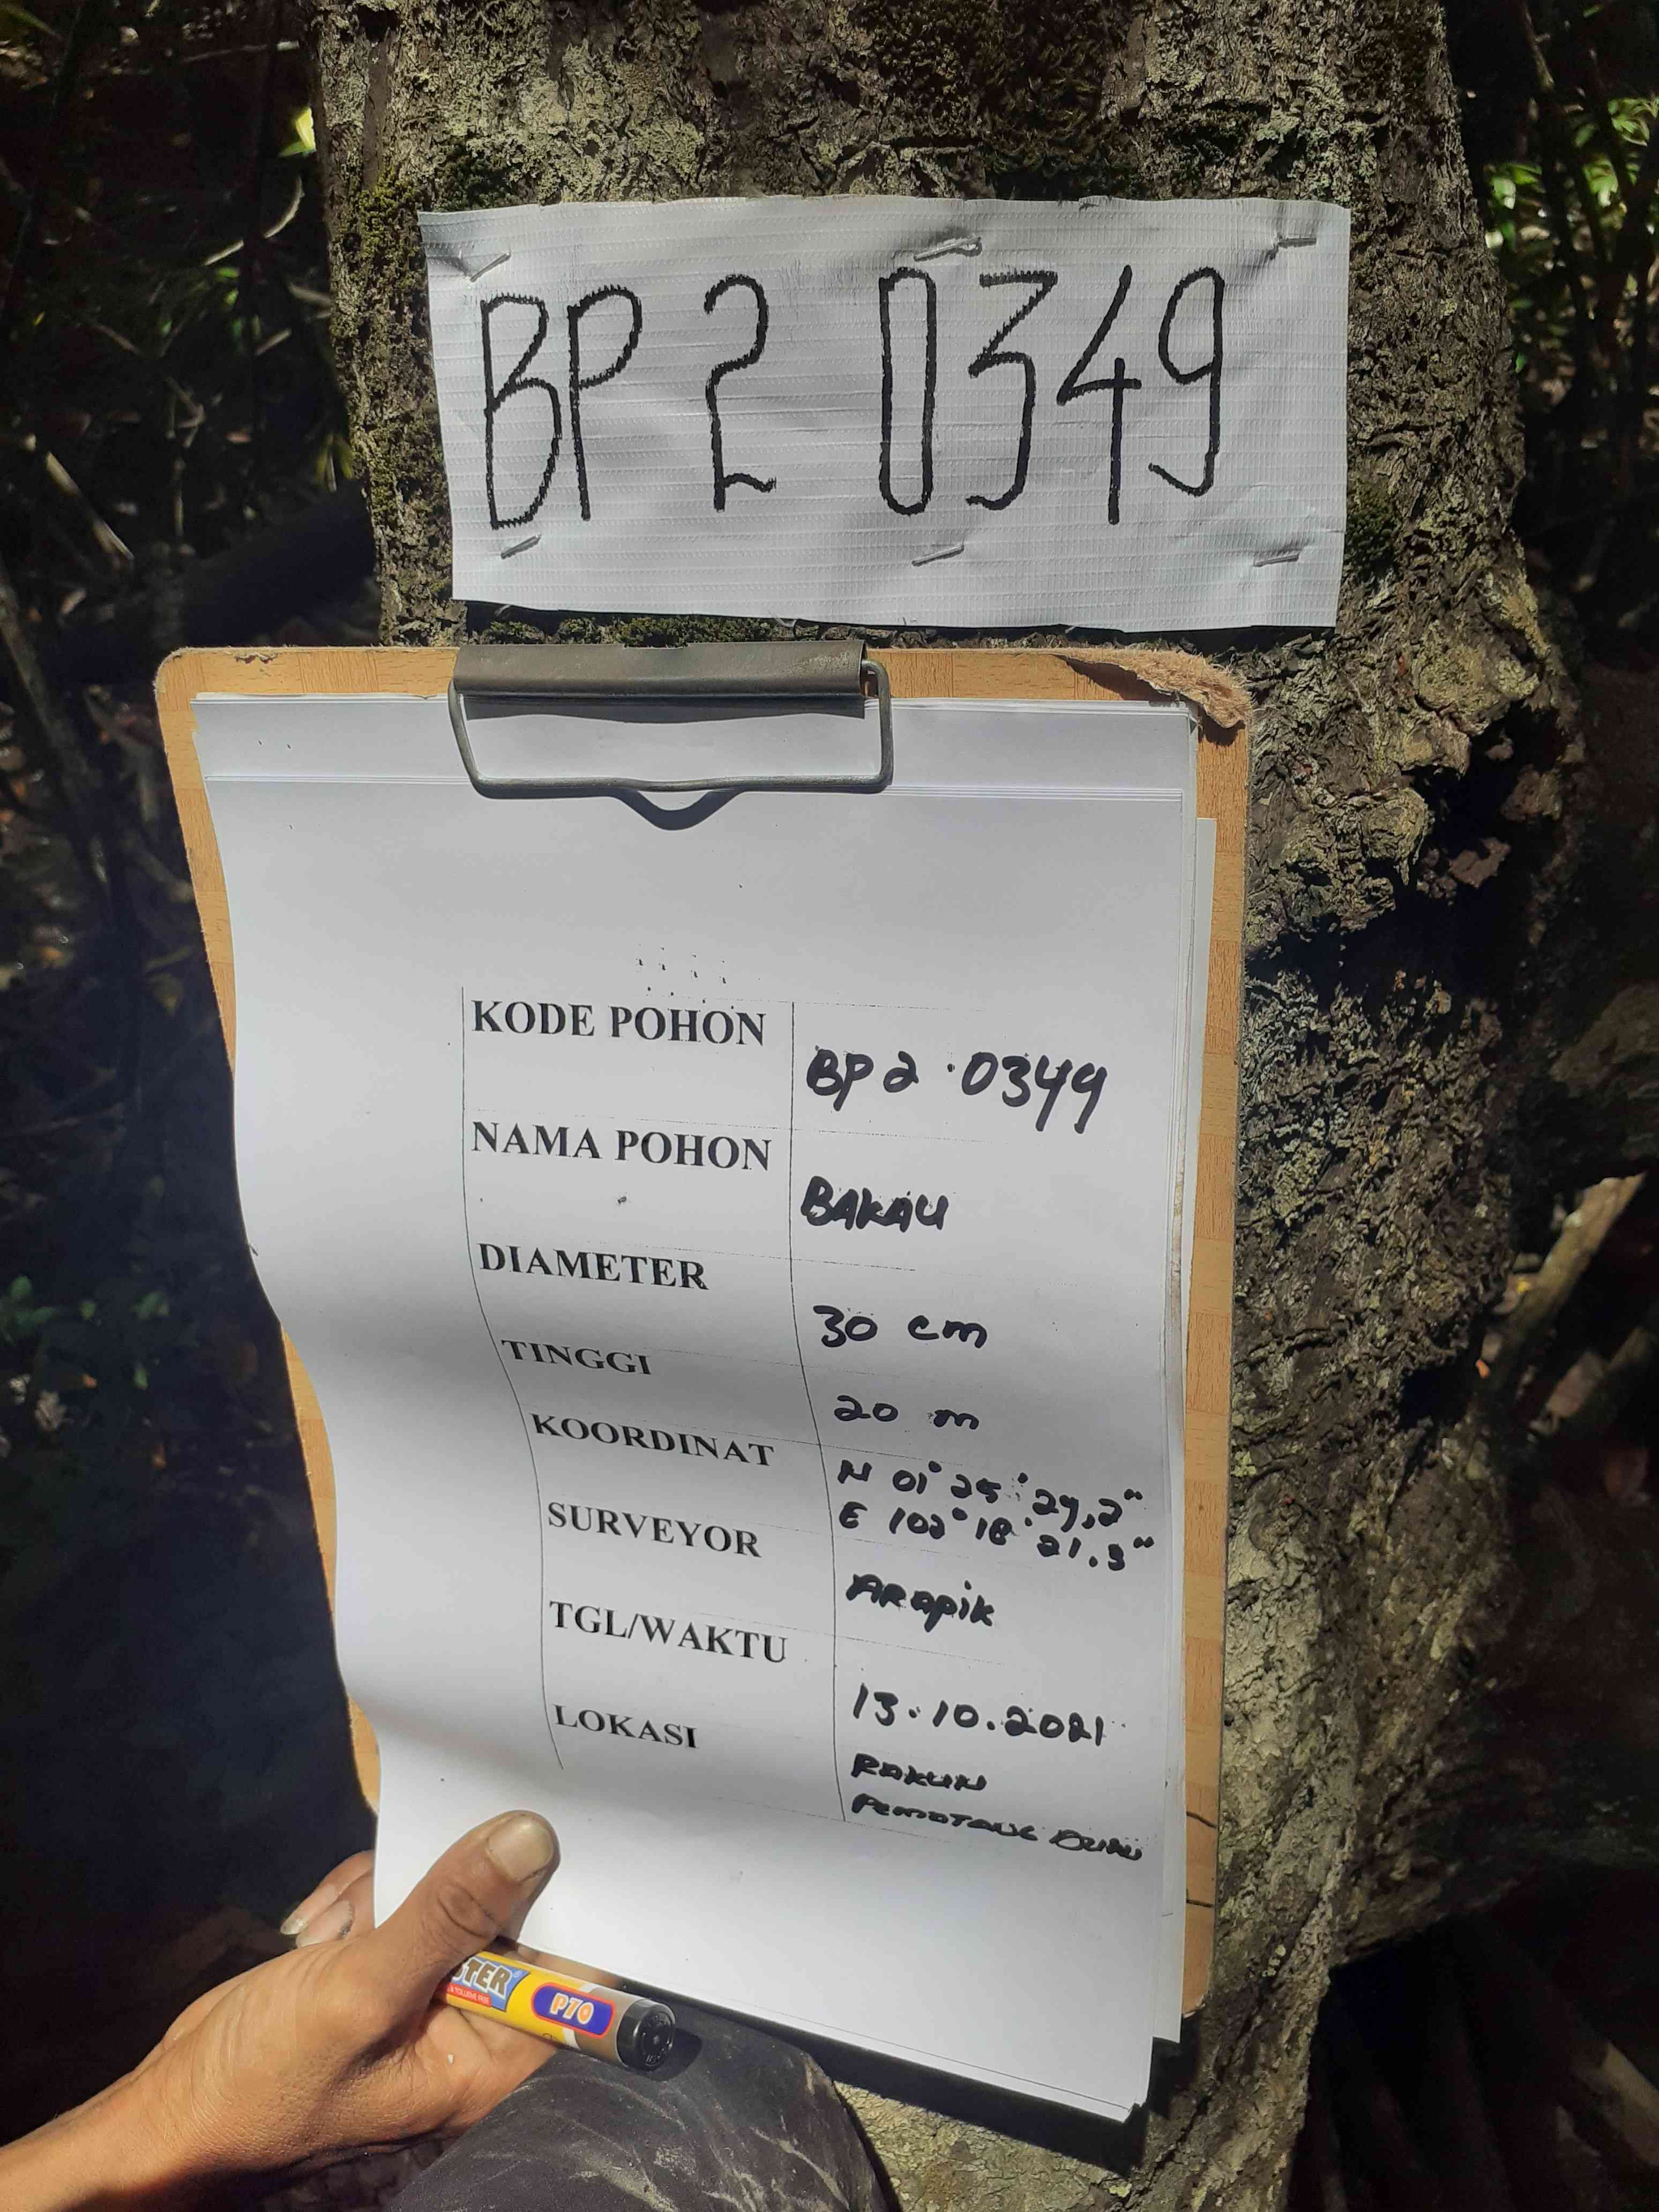 BP 2 0349
KODE POHON BP 2 . 0349
NAMA POHON BAKAU
DIAMETER 30 cm
TINGGI 20 m
KOORDINAT N 01° 25' 29,2"
E 102° 18' 21.3"
SURVEYOR ARapik
TGL/WAKTU 13.10.2021
LOKASI
PemaTang
STER
P70